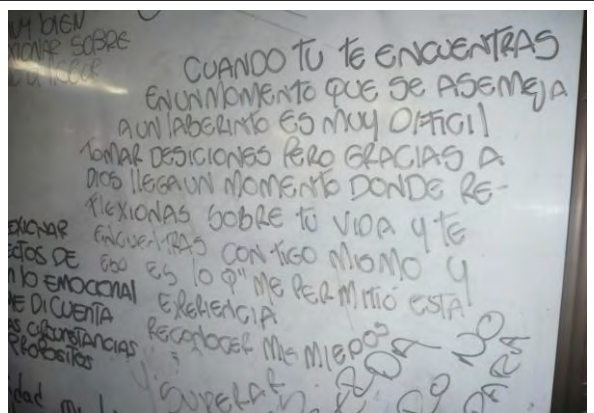 UY BIEN
XIONAR SOBRE
CUANDO TU TE ENCUENTRAS
EN UN MOMENTO QUE SE ASEMEJA
A UN LABERINTO ES MUY DIFICIL
TOMAR DESICIONES PERO GRACIAS A
DIOS LLEGA UN MOMENTO DONDE RE-
FLEXIONAS SOBRE TU VIDA Y TE
ENCUENTRAS CONTIGO MISMO Y
ESO ES LO Q" ME PERMITIÓ ESTA
EXPERIENCIA
RECONOCER MIS MIEDOS
Y SUPERAR
EXIONAR
ECTOS DE
LO EMOCIONAL
E DI CUENTA
AS CIRCUNSTANCIAS
PROPOSITOS